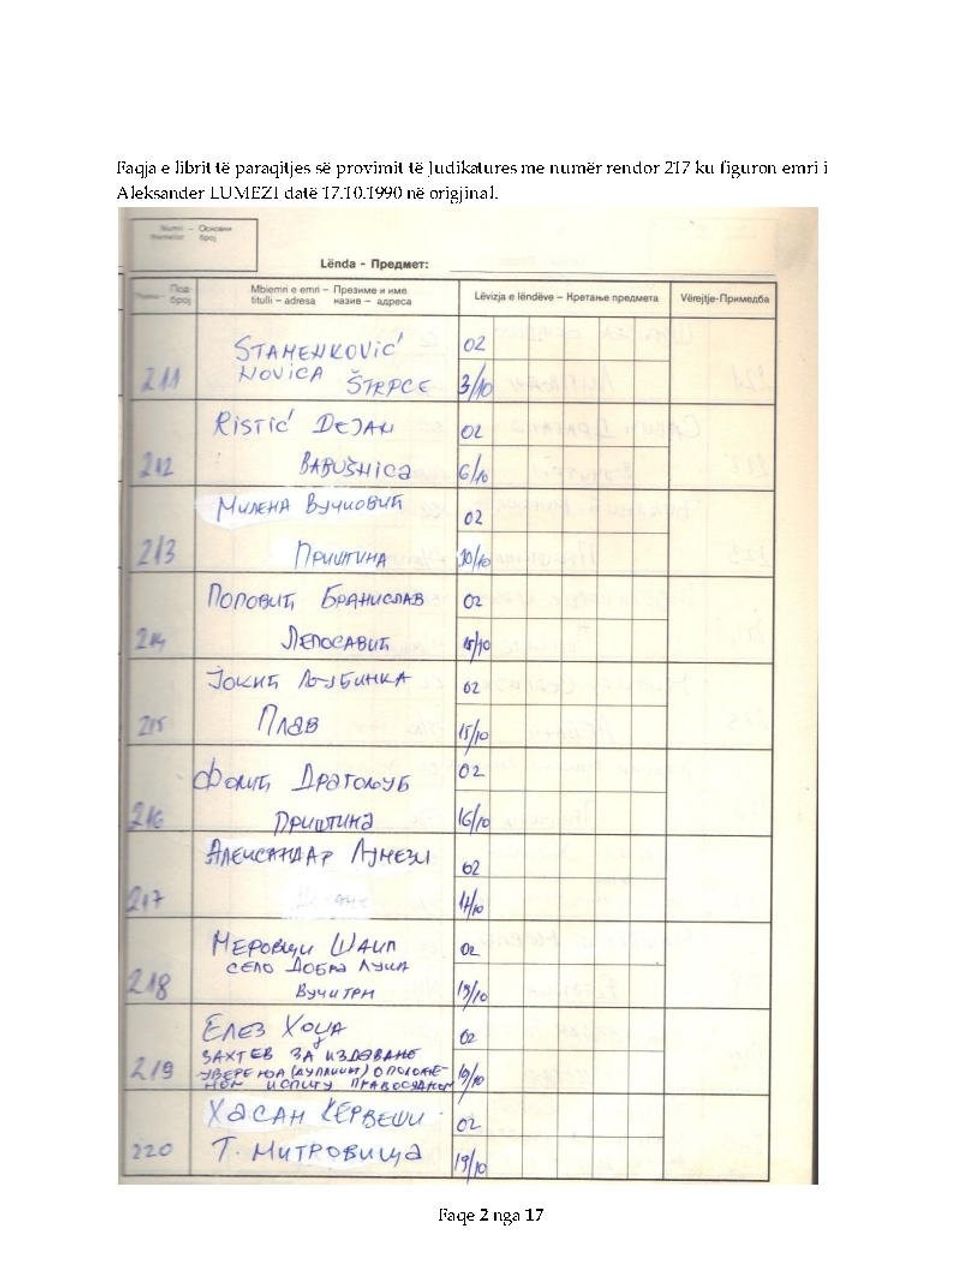 Faqja e librit të paraqitjes së provimit të Judikatures me numër rendor 217 ku figuron emri i
Aleksander LUMEZI datë 17.10.1990 në origjinal.
Numri – Основни
број
Lënda - Предмет:
Под-
број
Mbiemri e emri – Презиме и име
titulli – adresa назив – адреса
Lëvizja e lëndëve – Кретање предмета
Vërejtje-Примедба
211
STAMENKOVIĆ
NOVICA ŠTRPCE
02
3/10
212
RISTIĆ DEJAN
BABUŠNICA
02
6/10
213
МИЛЕНА ВУЧКОВИЋ
ПРИШТИНА
02
10/10
214
ПОПОВИЋ БРАНИСЛАВ
ЛЕПОСАВИЋ
02
15/10
215
ЈОКИЋ ЉУБИНКА
ПЛАВ
02
15/10
216
ФОЛИЋ ДРАГОЉУБ
ПРИШТИНА
02
16/10
217
АЛЕКСАНДАР ЛУМЕЗИ
02
17/10
218
МЕРОВЦИ ШАИП
СЕЛО ДОБРА ЛУКА
ВУЧИТРН
02
19/10
219
ЕЛЕЗ ХОЏА
ЗАХТЕВ ЗА ИЗДАВАЊЕ
УВЕРЕЊА (ДУПЛИКАТ) О ПОЛОЖЕ-
НОМ ИСПИТУ ПРАВОСУДНОМ
02
19/10
220
ХАСАН КЕРВЕШИ
Т. МИТРОВИЦА
02
19/10
Faqe 2 nga 17